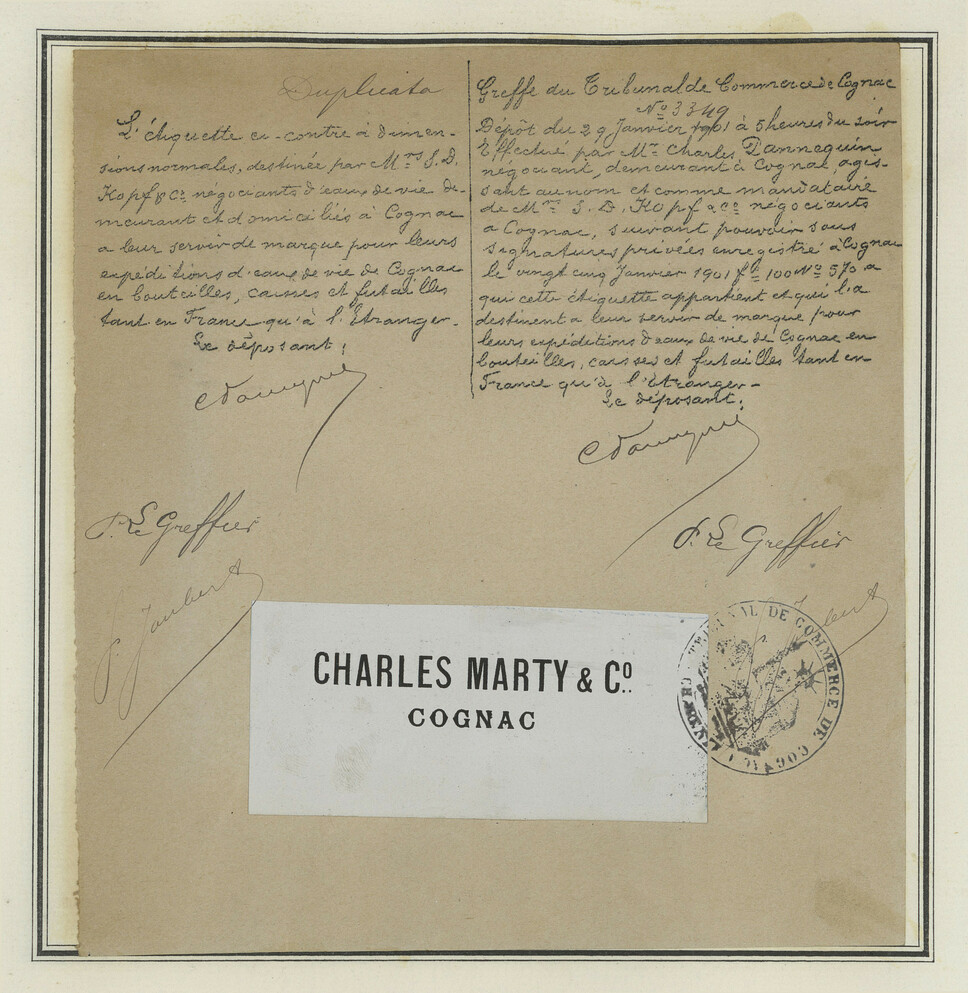 Duplicata
L'étiquette ci-contre à dimen-
sions normales, destinée par Mrs S. D.
Kopf & Co négociants d'eaux de vie de-
meurant et domiciliés à Cognac
a leur servir de marque pour leurs
expéditions d'eaux de vie de Cognac
en bouteilles, caisses et futailles
tant en France qu'à l'étranger.
Le déposant,
P. Le Greffier
P. Joubert
Greffe du Tribunal de Commerce de Cognac
No 3349
Dépôt du 29 Janvier 1901 à 5 heures du soir
Effectué par Mr Charles Dannequin
négociant, demeurant à Cognac, agis-
sant au nom et comme mandataire
de Mrs S. D. Kopf & Co négociants
a Cognac, suivant pouvoir sous
signatures privées enregistré à Cognac
le vingt cinq Janvier 1901 fo 100 No 570 a
qui cette étiquette appartient et qui l'a
destinent a leur servir de marque pour
leurs expéditions d'eaux de vie de Cognac en
bouteilles, caisses et futailles tant en
France qu'à l'étranger-
Le déposant,
P. Le Greffier
CHARLES MARTY & Co.
COGNAC
TRIBUNAL DE COMMERCE DE COGNAC